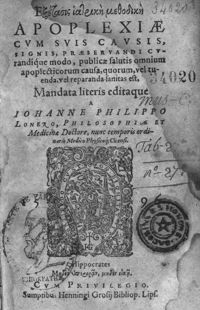 Ἐξέτασις ἰατρικὴ μεθοδικὴ
34820
APOPLEXIÆ
CVM SVIS CAVSIS,
SIGNIS, PRÆSERVANDI CV-
randique modo, publicæ salutis omnium
apoplecticorum causa, quorum, vel tu-
enda vel reparanda sanitas est,
34020
Mandata literis editaque
A
IOHANNE PHILIPPO
LONERO, PHILOSOPHIÆ ET
Medicinæ Doctore, nunc temporis ordi-
nario Medico
Tab-2
n.° 27
Hippocrates
CVM PRIVILEGIO.
Sumptibus Henningi Grosij Bibliop. Lips.